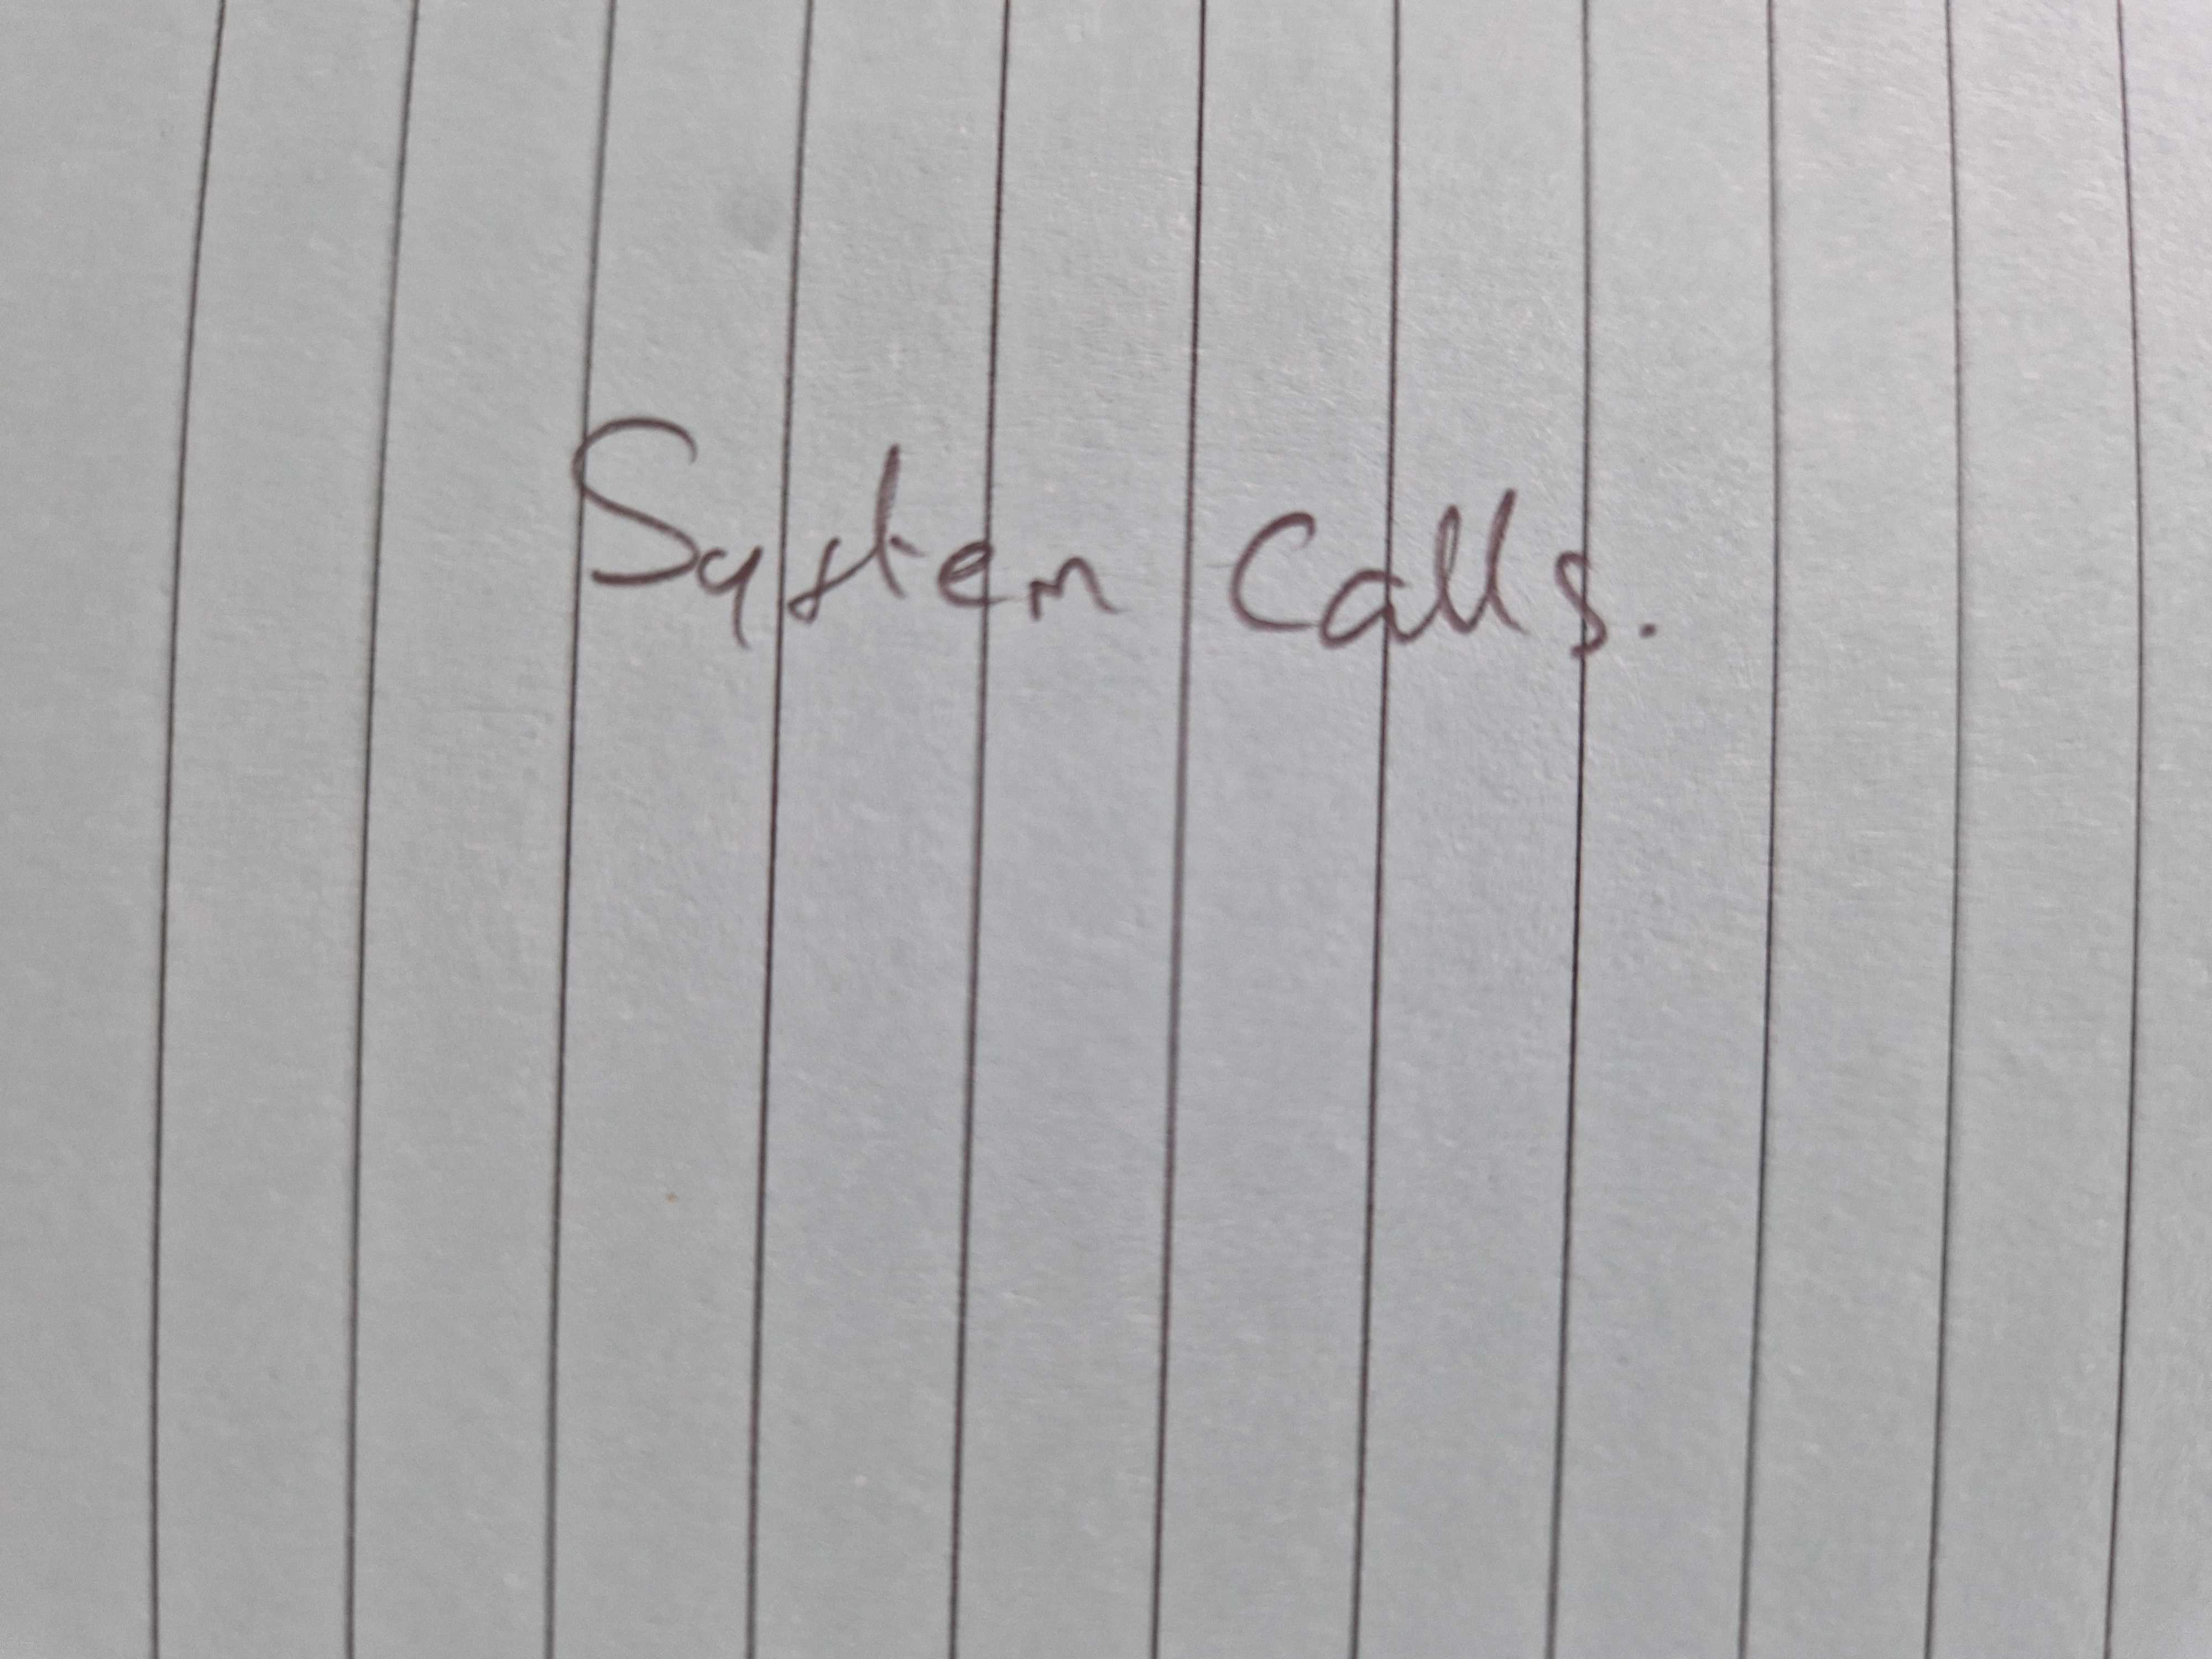 System Calls.